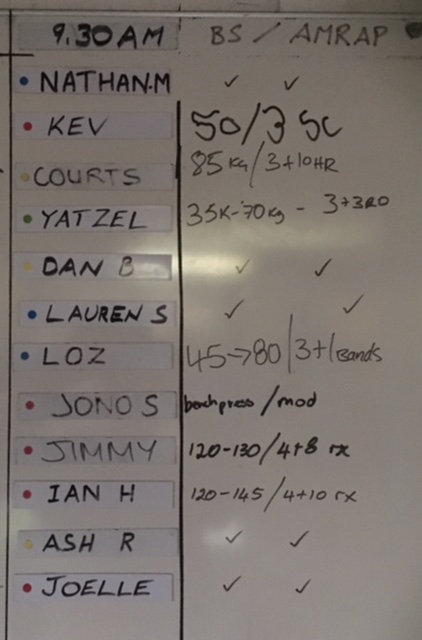 9.30AM BS / AMRAP
NATHAN.M ✓ ✓
KEV 50/3 SC
COURTS 85kg/3+10HR
YATZEL 35K-70kg - 3+3RO
DAN B ✓ ✓
LAUREN S ✓ ✓
LOZ 45→80/3+1Bands
JONO S benchpress/mod
JIMMY 120-130/4+8 rx
IAN H 120-145/4+10 rx
ASH R ✓ ✓
JOELLE ✓ ✓